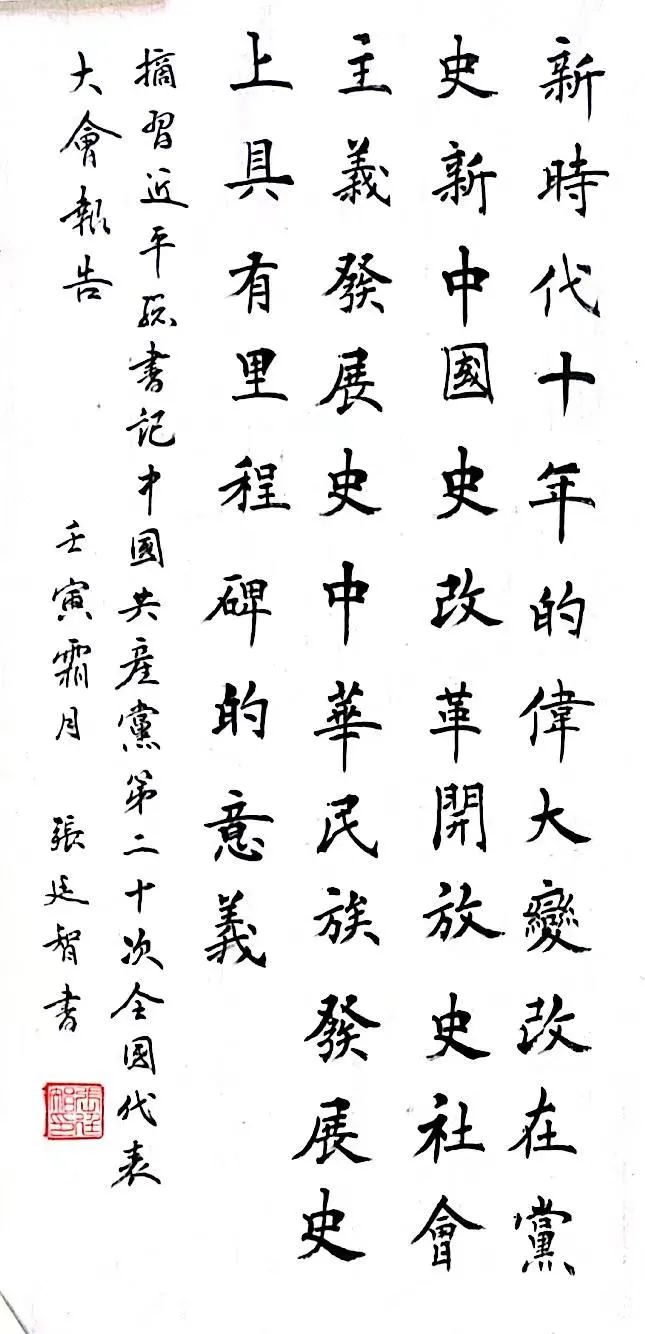 新時代十年的偉大變改在黨
史新中國史改革開放史社會
主義發展史中華民族發展史
上具有里程碑的意義
摘習近平總書記中國共產黨第二十次全國代表
大會報告
壬寅霜月 張廷智書